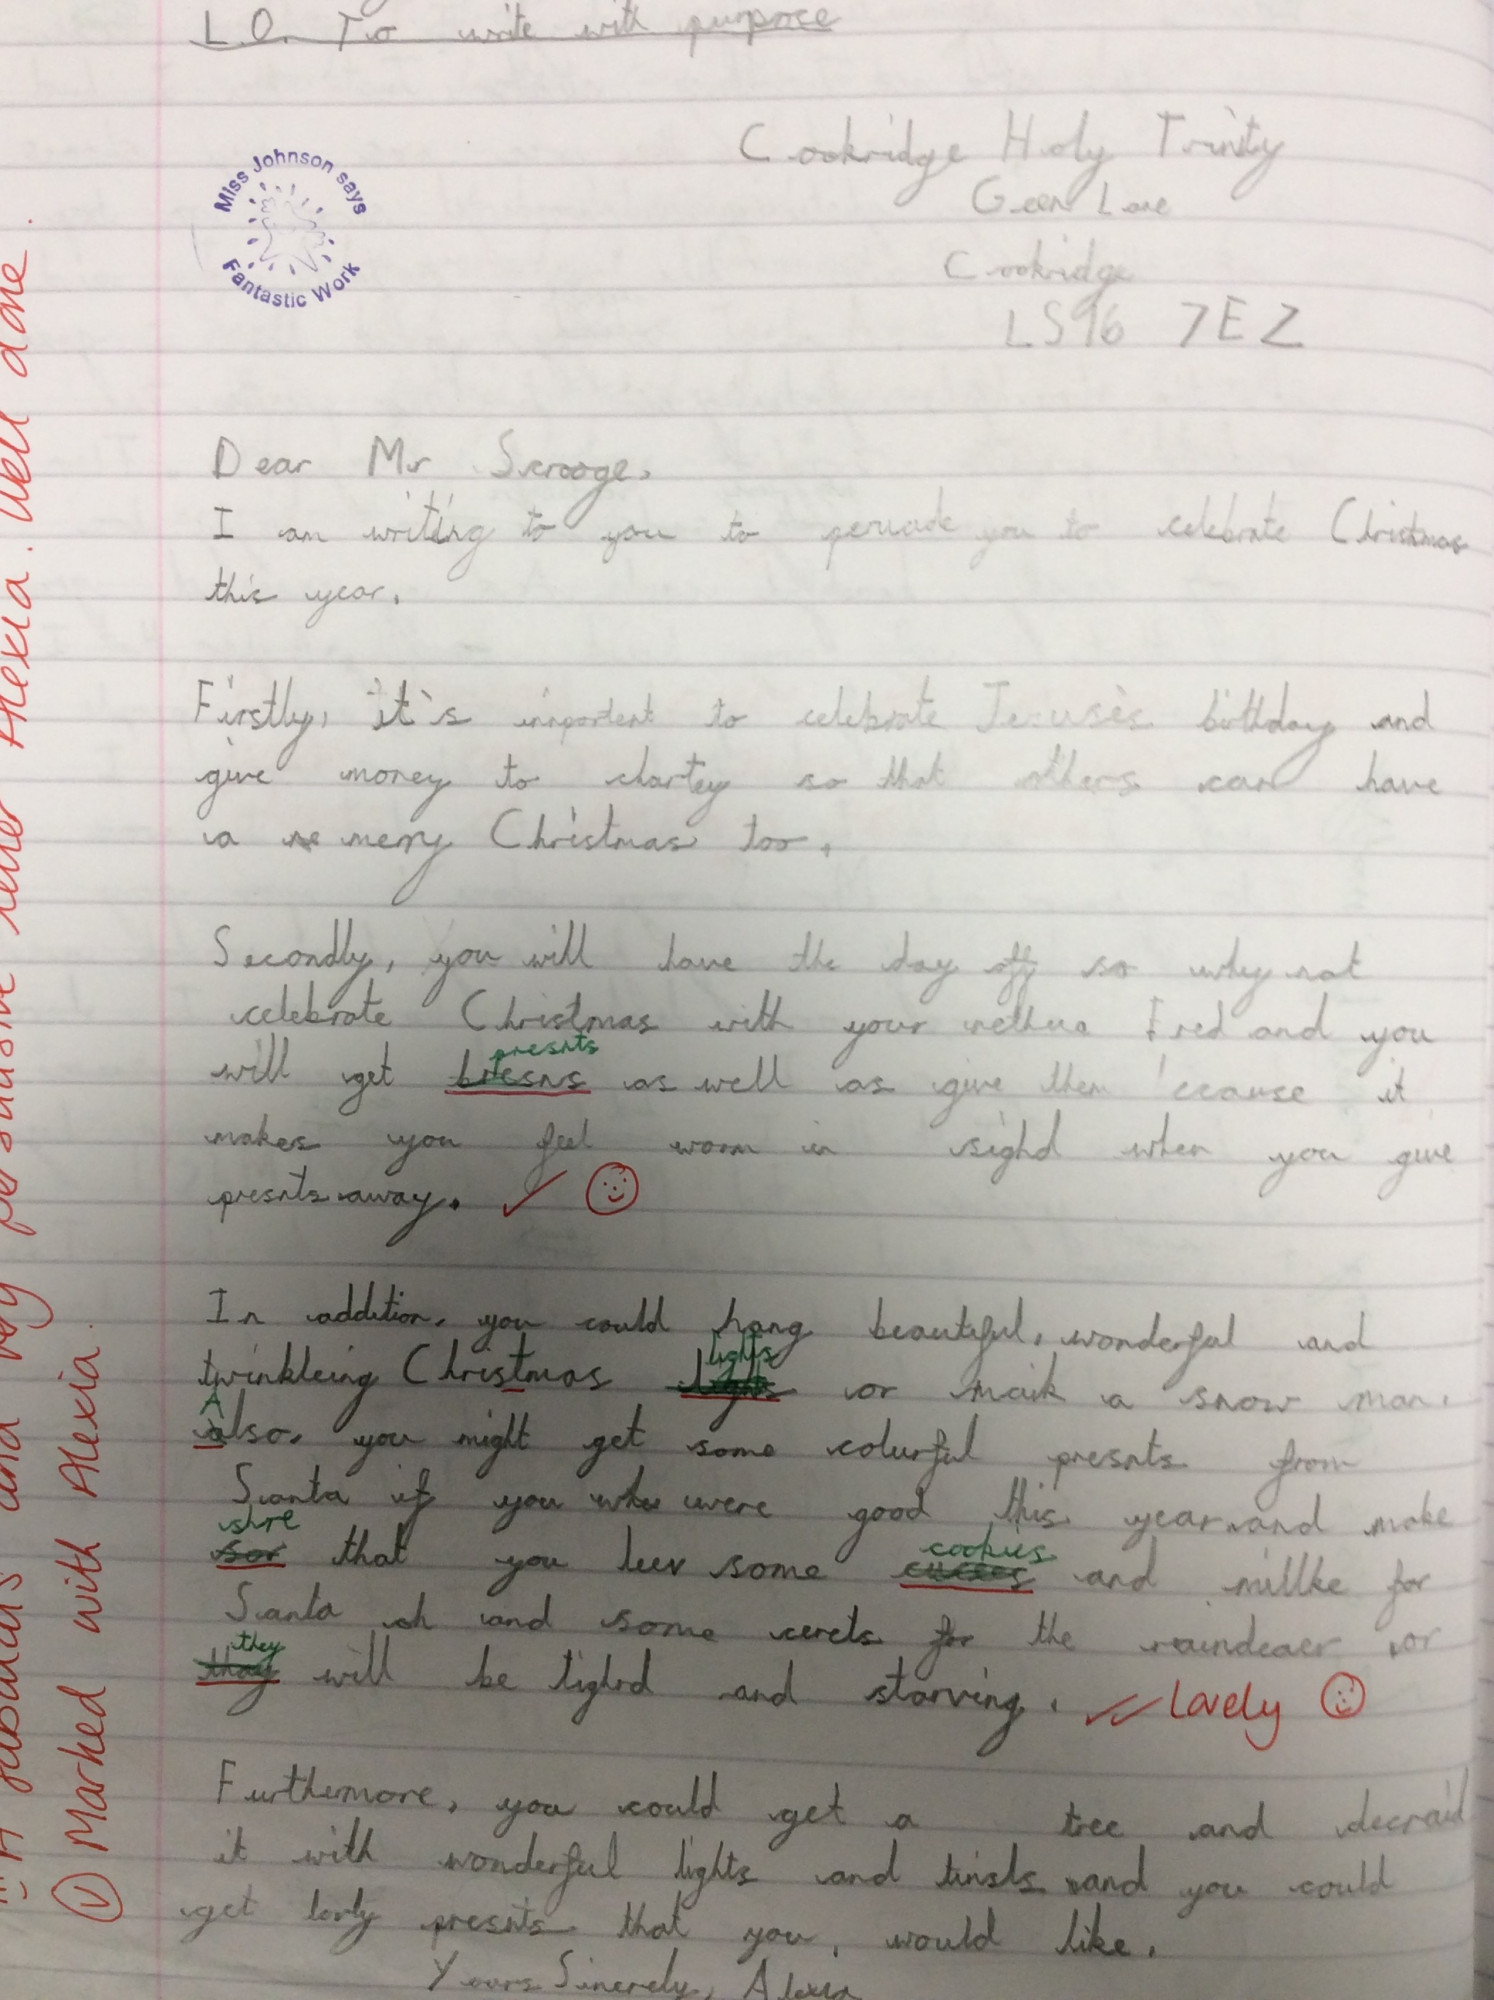 L.O. To write with purpose
Cookridge Holy Trinity
Green Lane
Cookridge
LS16 7EZ
Miss Johnson says
Fantastic Work
Dear Mr Scrooge,
I am writing to you to peruade you to celebrate Christmas
this year.
Firstly, it's important to celebrate Jesus's birthday and
give money to chartey so that others can have
a merry Christmas too.
Secondly, you will have the day off so why not
celebrate Christmas with your Fred and you
will get bresns presnts as well as give them 'ceause it
makes you feel worm in sighd when you give
presnts away.
In addition, you could hang beautiful, wonderful and
twinkleing Christmas lights or maik a snow man.
Also, you might get some colurful presnts from
Santa if you were good this year and make
sor shre that you leev some cookies and millke for
Santa oh and some cerets for the raindeaer or
thay they will be tighrd and starving. Lovely
Furthermore, you could get a tree and decraid
it with wonderful lights and tinsls and you could
get lovly presnts that you, would like.
Yours Sincerely, Alexia
A fabulous and very persuasive letter Alexia. Well done.
V Marked with Alexia.